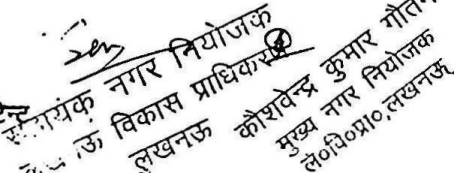 सहायक नगर नियोजक
विकास प्राधिकरण
लखनऊ
कौशवेन्द्र कुमार गौतम
मुख्य नगर नियोजक
ल०वि०प्रा०,लखनऊ